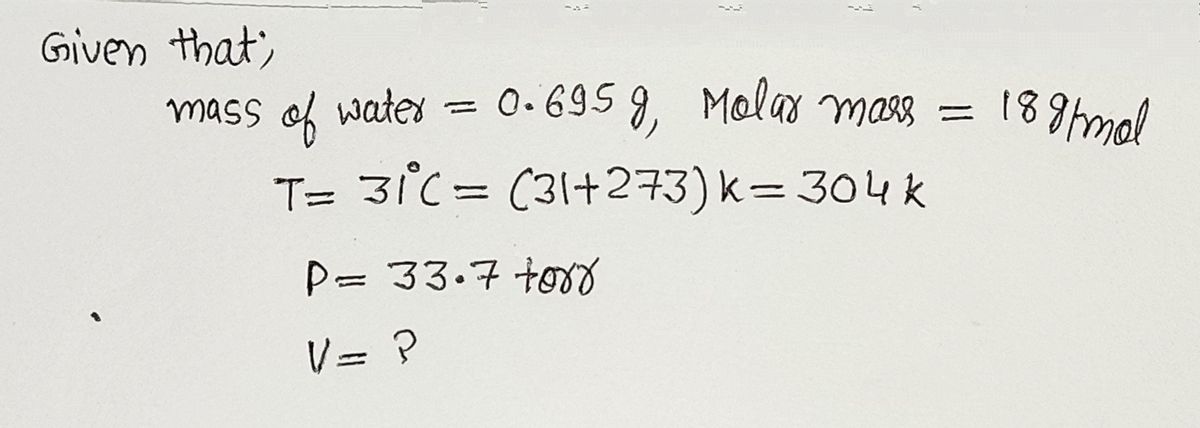 Given that;
mass of water = 0.695 g, Molar mass = 18 g/mol
T= 31°C = (31+273) k = 304 k
P= 33.7 torr
V= ?